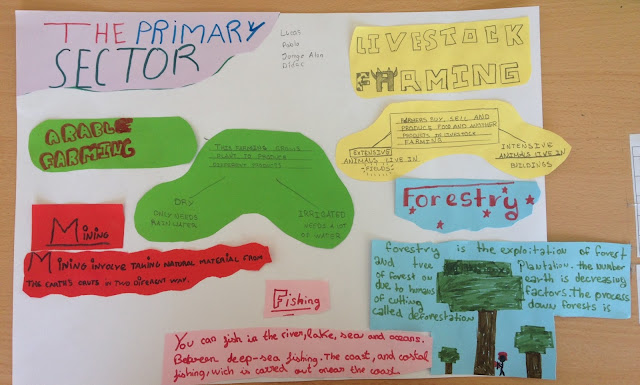 THE PRIMARY
SECTOR
Lucas
Pablo
Jorge Alba
Didac
LIVESTOCK
FARMING
ARABLE
FARMING
THIS FARMING GROWS
PLANT TO PRODUCE
DIFFERENT PRODUCTS
DRY
ONLY NEEDS
RAINWATER
IRRIGATED
NEEDS A LOT
OF WATER
FARMERS BUY, SELL AND
PRODUCE FOOD AND ANOTHER
PRODUCTS IN LIVESTOCK
FARMING
EXTENSIVE
ANIMALS LIVE IN
FIELDS
INTENSIVE
ANIMALS LIVE IN
BUILDINGS
Forestry
MINING
MINING INVOLVE TAKING NATURAL MATERIAL FROM
THE EARTHS CRUTS IN TWO DIFERENT WAY.
forestry is the exploitation of forest
and tree Plantation. the number
of forest on earth is decreasing
due to humans factors. The process
of cutting down forests is
called deforestation
Fishing
You can fish in the river, lake, sea and oceans.
Between deep-sea fishing. The coast, and costal
fishing, wich is carred out onear the coast.